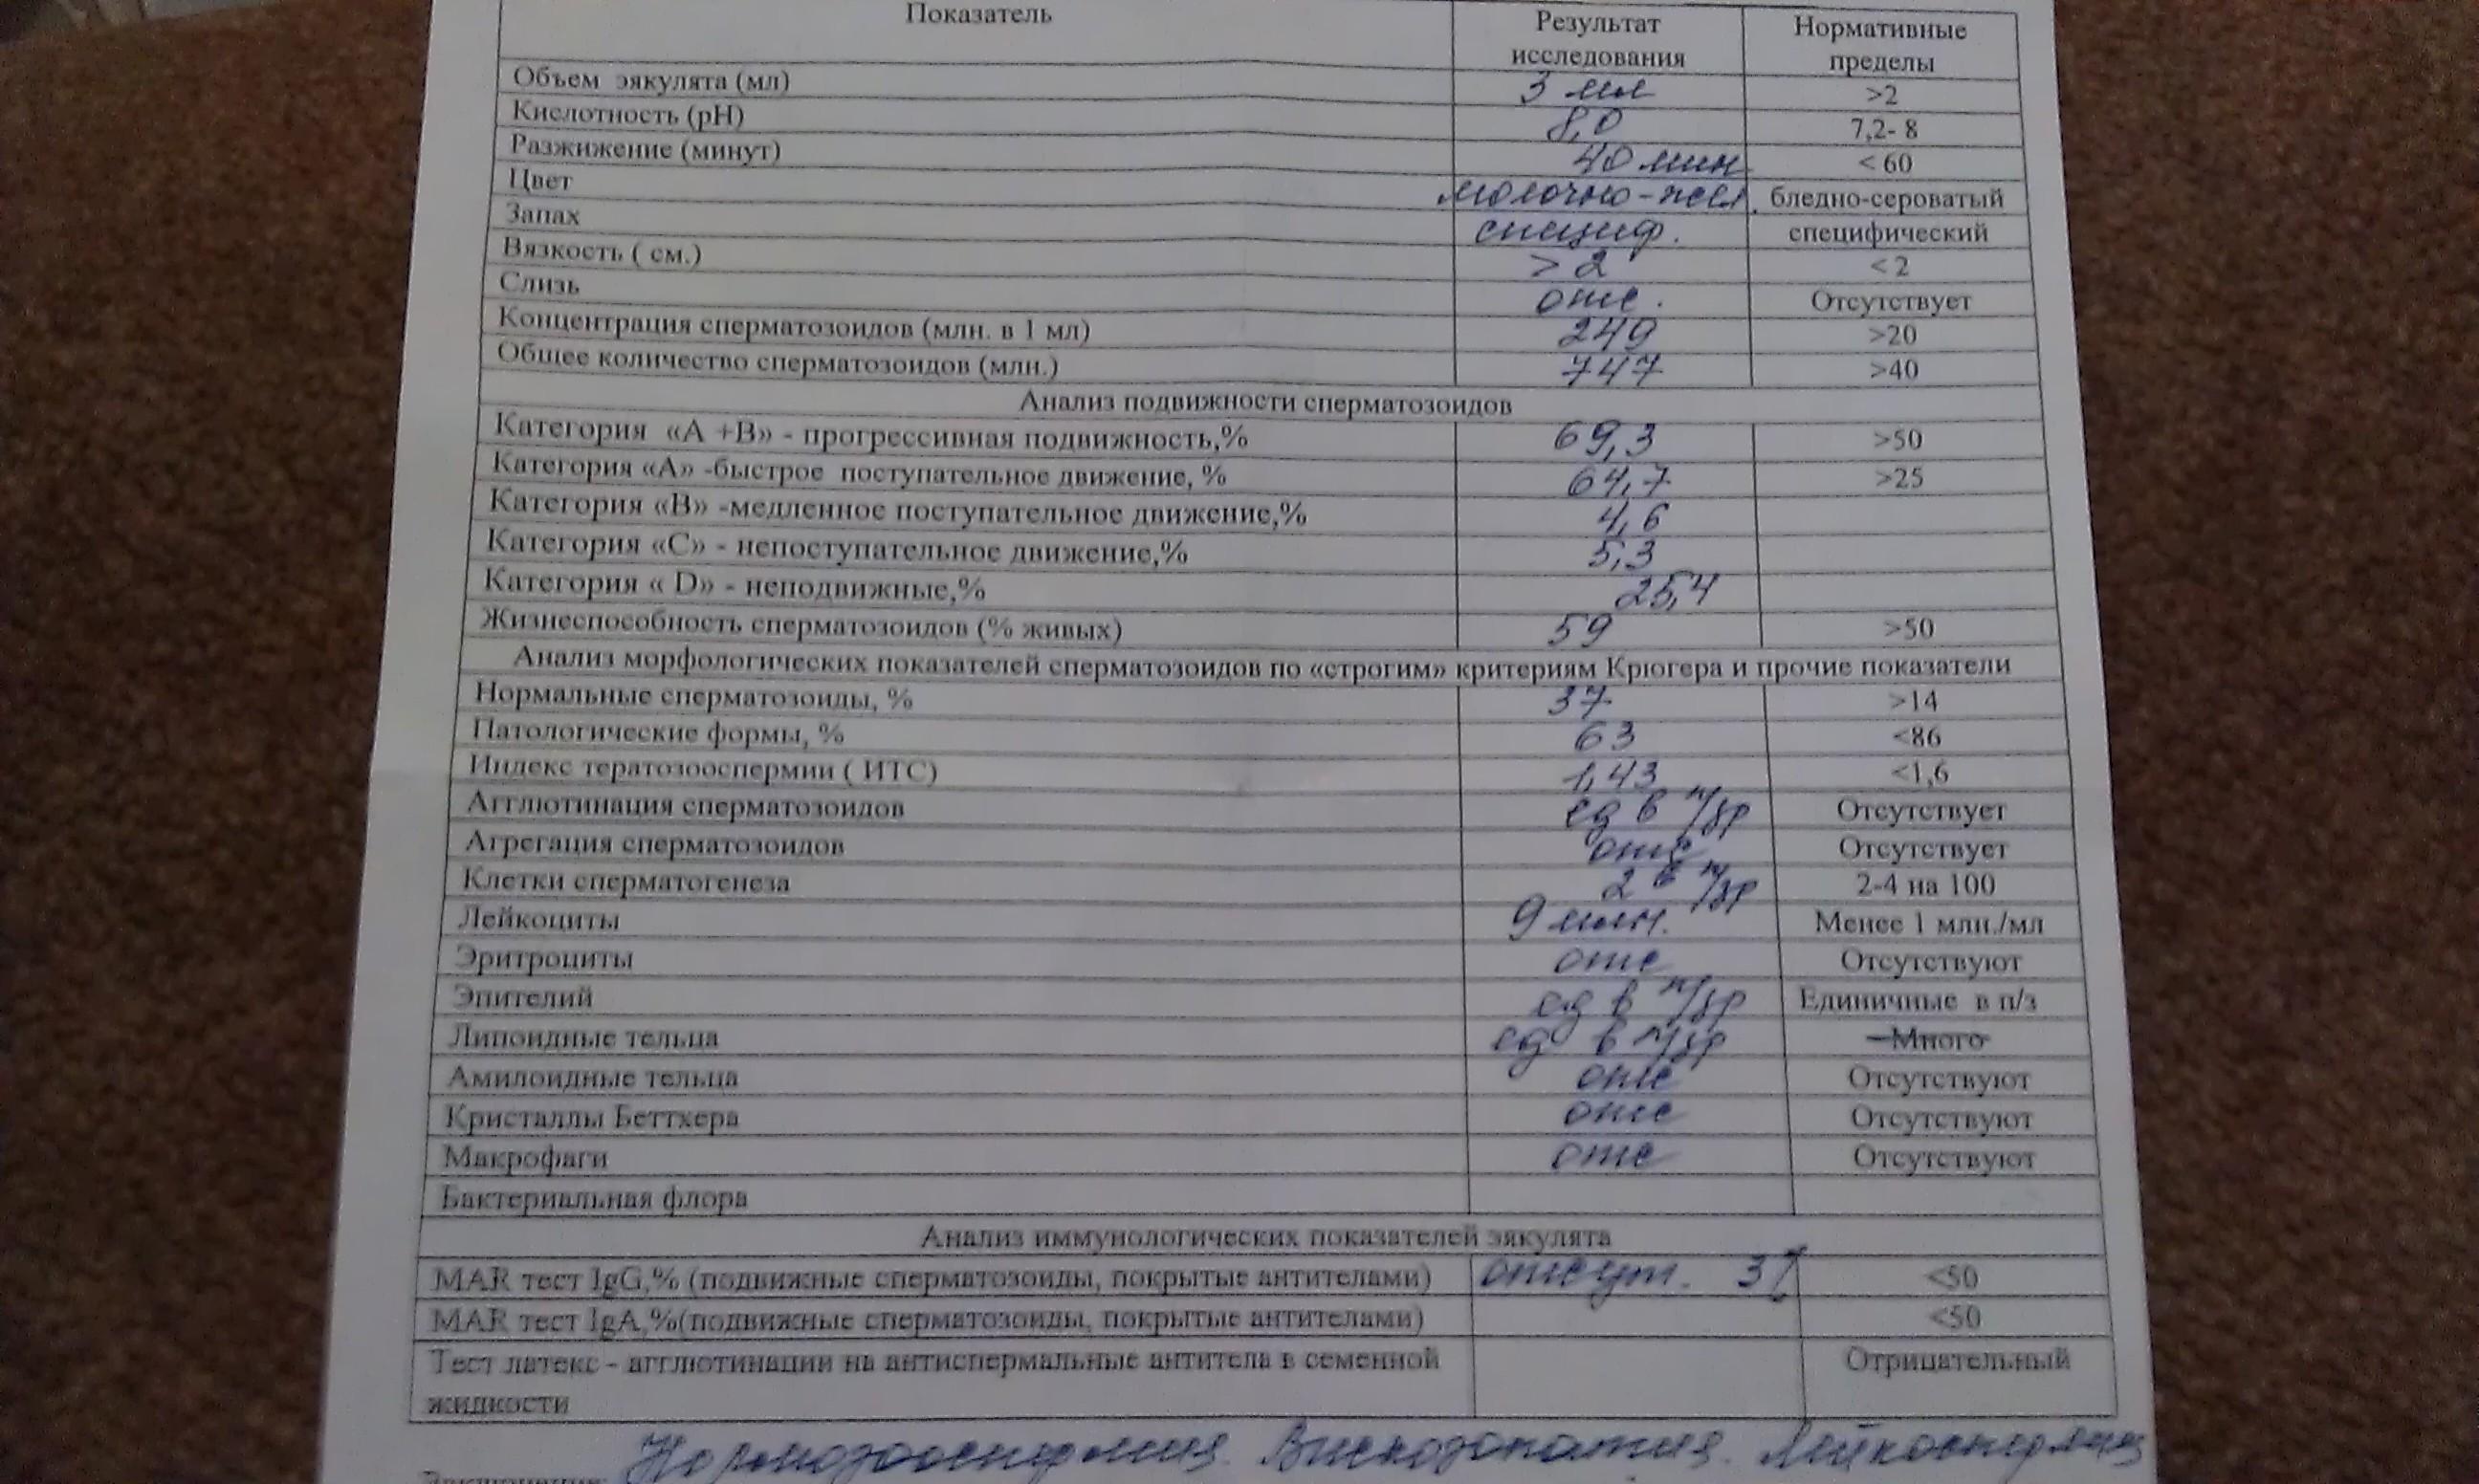 Показатель Результат исследования Нормативные пределы
Объем эякулята (мл) 3 мл >2
Кислотность (pH) 8,0 7,2- 8
Разжижение (минут) 40 мин < 60
Цвет молочно-жел. бледно-сероватый
Запах специф. специфический
Вязкость ( см.) > 2 < 2
Слизь отс. Отсутствует
Концентрация сперматозоидов (млн. в 1 мл) 249 >20
Общее количество сперматозоидов (млн.) 747 >40
Анализ подвижности сперматозоидов
Категория «А +В» - прогрессивная подвижность,% 69,3 >50
Категория «А» -быстрое поступательное движение, % 64,7 >25
Категория «В» -медленное поступательное движение,% 4,6
Категория «С» - непоступательное движение,% 5,3
Категория « D» - неподвижные,% 25,4
Жизнеспособность сперматозоидов (% живых) 59 >50
Анализ морфологических показателей сперматозоидов по «строгим» критериям Крюгера и прочие показатели
Нормальные сперматозоиды, % 37 >14
Патологические формы, % 63 <86
Индекс тератозооспермии ( ИТС) 1,43 <1,6
Агглютинация сперматозоидов ед в п/зр Отсутствует
Агрегация сперматозоидов отс Отсутствует
Клетки сперматогенеза 2 в п/зр 2-4 на 100
Лейкоциты 9 млн. Менее 1 млн./мл
Эритроциты отс Отсутствуют
Эпителий ед в п/зр Единичные в п/з
Липоидные тельца ед в п/зр Много
Амилоидные тельца отс Отсутствуют
Кристаллы Беттхера отс Отсутствуют
Макрофаги отс Отсутствуют
Бактериальная флора
Анализ иммунологических показателей эякулята
MAR тест IgG,% (подвижные сперматозоиды, покрытые антителами) отсут. 3% <50
MAR тест IgA,%(подвижные сперматозоиды, покрытые антителами) <50
Тест латекс - агглютинации на антиспермальные антитела в семенной жидкости Отрицательный
Нормозооспермия. Вискозопатия. Лейкоспермия